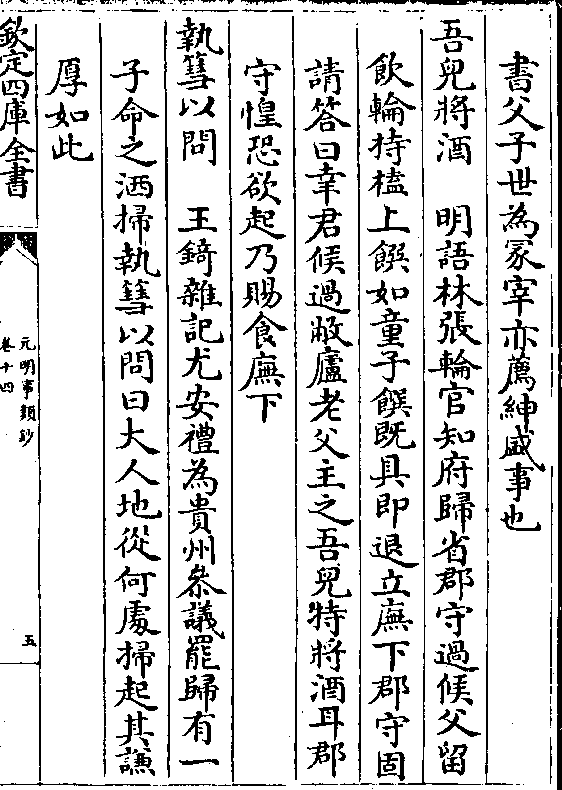 書父子世為冢宰亦薦紳盛事也
吾兒將酒　明語林張輪官知府歸省郡守過候父留
飲輪持榼上饌如童子饌既具即退立廡下郡守固
請答曰幸君候過敝廬老父主之吾兒特將酒耳郡
守惶恐欲起乃賜食廡下
執篲以問　王錡雜記尤安禮為貴州叅議罷歸有一
子命之洒掃執篲以問曰大人地從何處掃起其謙
厚如此
欽定四庫全書
元明事類鈔
卷十四
五